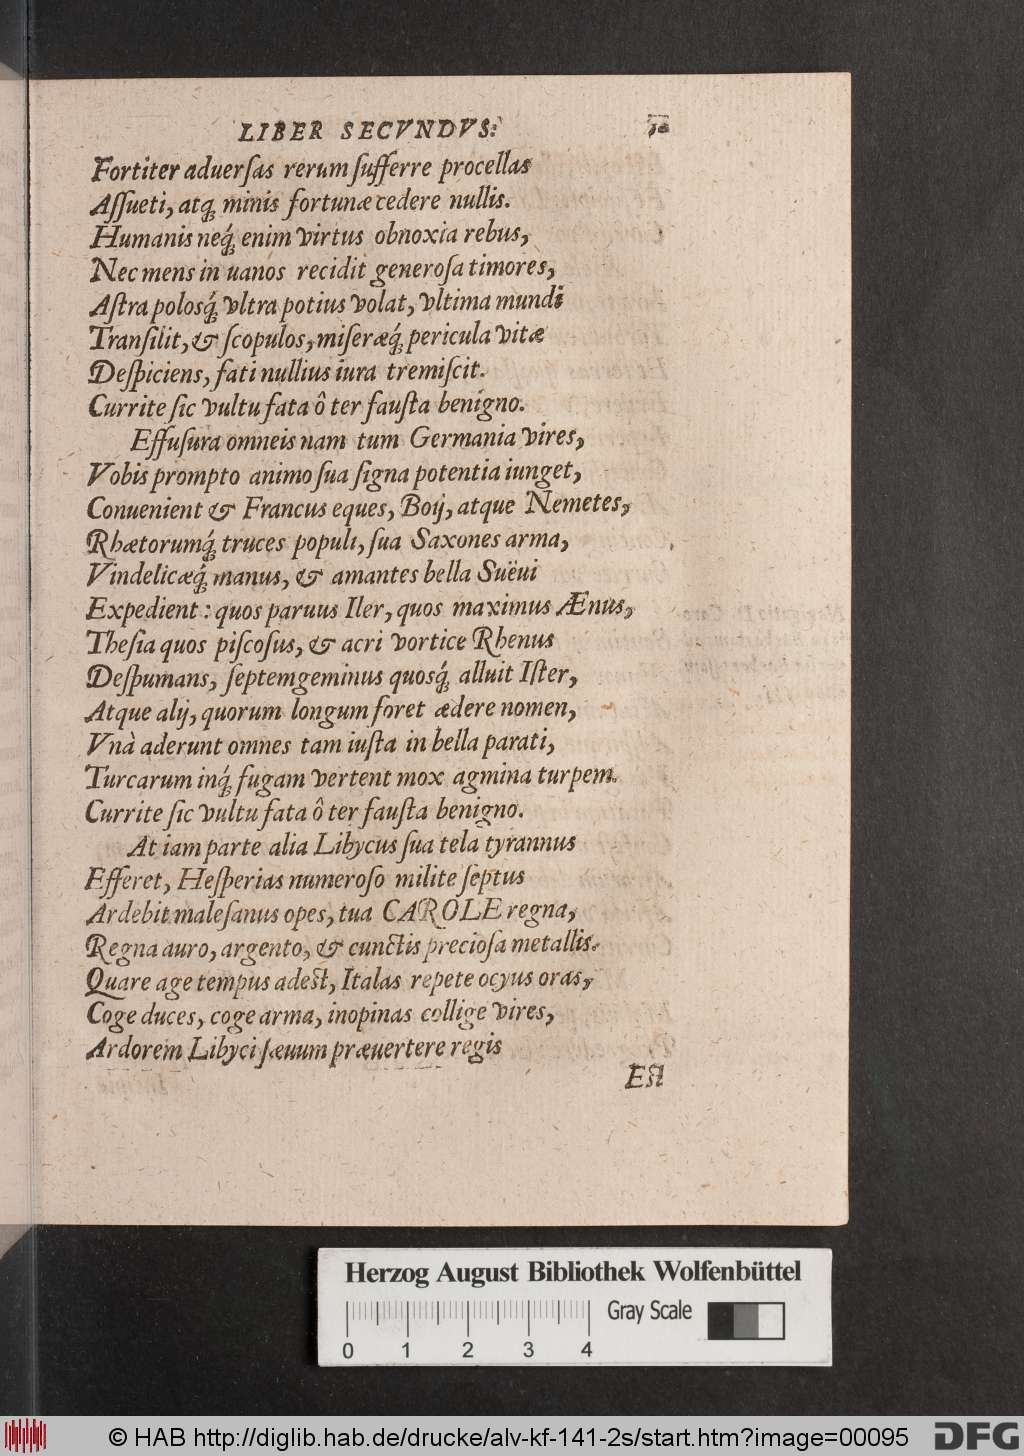 LIBER SECVNDVS.
Fortiter aduerſas rerum ſufferre procellas
Aſſueti, atq́ minis fortunæ cedere nullis.
Humanis neq́ enim virtus obnoxia rebus,
Nec mens in uanos recidit generoſa timores,
Aſtra polosq́ vltra potius volat, vltima mundi
Tranſilit, & ſcopulos, miſeræq́ pericula vitæ
Deſpiciens, fati nullius iura tremiſcit.
Currite ſic vultu fata ô ter fauſta benigno.
Effuſura omneis nam tum Germania vires,
Vobis prompto animo ſua ſigna potentia iunget,
Conuenient & Francus eques, Boij, atque Nemetes,
Rhætorumq́ truces populi, ſua Saxones arma,
Vindelicæq́ manus, & amantes bella Suëui
Expedient: quos paruus Iler, quos maximus Ænus,
Theſia quos piſcoſus, & acri vortice Rhenus
Deſpumans, ſeptemgeminus quosq́ alluit Iſter,
Atque alij, quorum longum foret ædere nomen,
Vnà aderunt omnes tam iuſta in bella parati,
Turcarum inq́ fugam vertent mox agmina turpem.
Currite ſic vultu fata ô ter fauſta benigno.
At iam parte alia Libycus ſua tela tyrannus
Efferet, Heſperias numeroſo milite ſeptus
Ardebit maleſanus opes, tua CAROLE regna,
Regna auro, argento, & cunctis precioſa metallis.
Quare age tempus adest, Italas repete ocyus oras,
Coge duces, coge arma, inopinas collige vires,
Ardorem Libyci ſæuum præuertere regis
Eſt
Herzog August Bibliothek Wolfenbüttel
Gray Scale
0 1 2 3 4
© HAB http://diglib.hab.de/drucke/alv-kf-141-2s/start.htm?image=00095
DFG